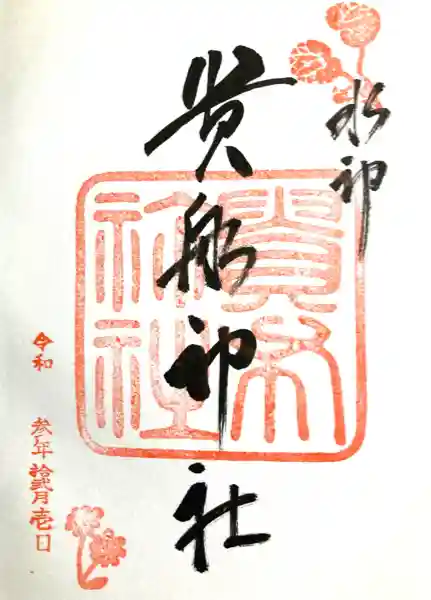 水神
貴船神社
貴船神社
令和 参年拾弐月壱日